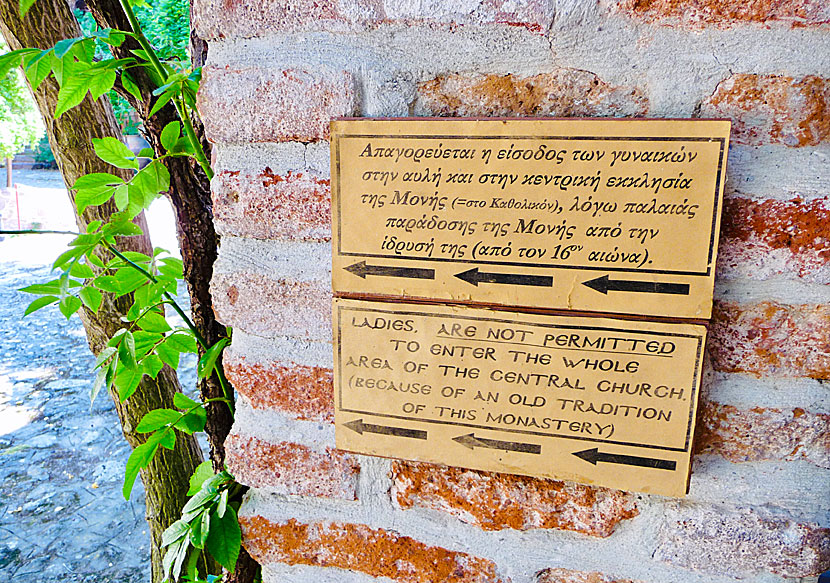 Απαγορεύεται η είσοδος των γυναικών
στην αυλή και στην κεντρική εκκλησία
της Μονής (=στο Καθολικόν), λόγω παλαιάς
παράδοσης της Μονής από την
ίδρυσή της (από τον 16ον αιώνα).
LADIES, ARE NOT PERMITTED
TO ENTER THE WHOLE
AREA OF THE CENTRAL CHURCH.
(BECAUSE OF AN OLD TRADITION
OF THIS MONASTERY)